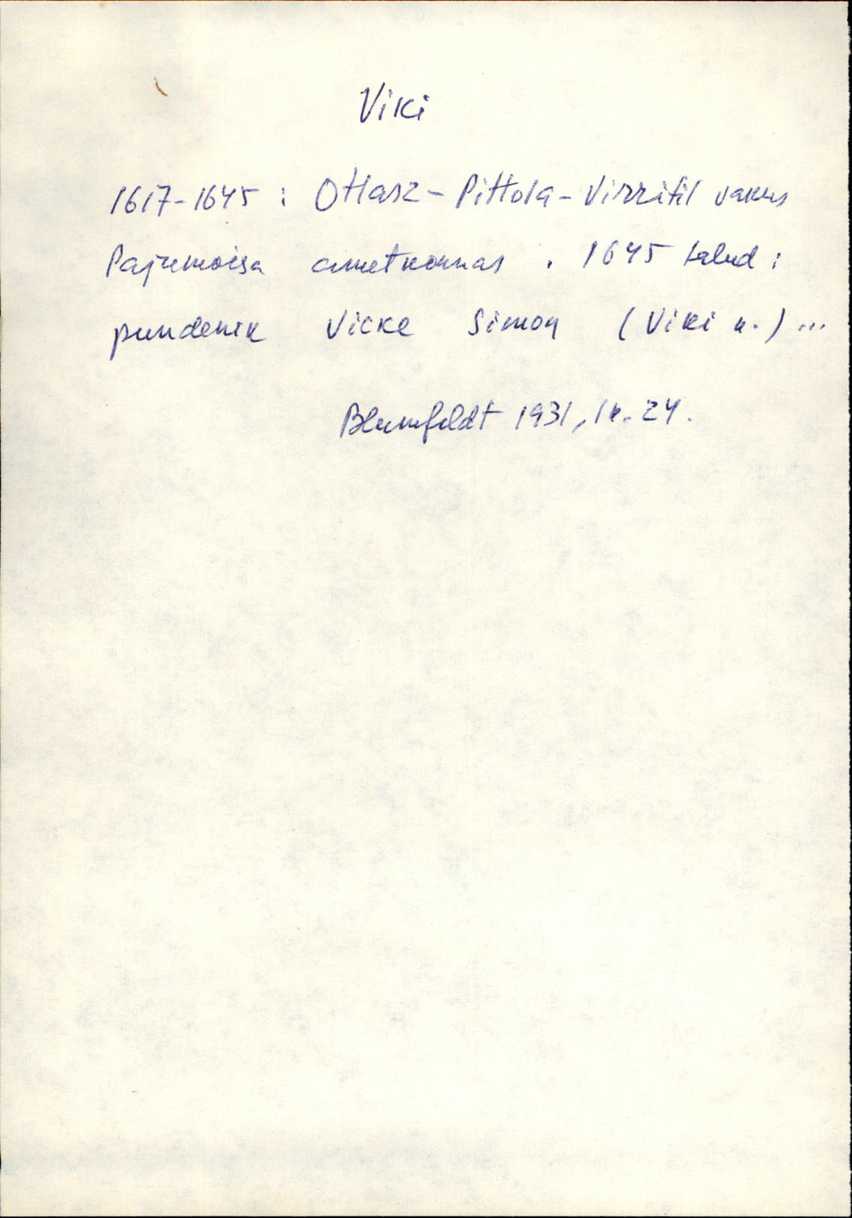 Viki
1617-1645 : Ottasz - Pittola - Virrifil vakus
Pajumoisa ametkonnas . 1645 talud :
pundenik Vicke Simon (Viki k.) ...
Blumfeldt 1931, lk. 24.